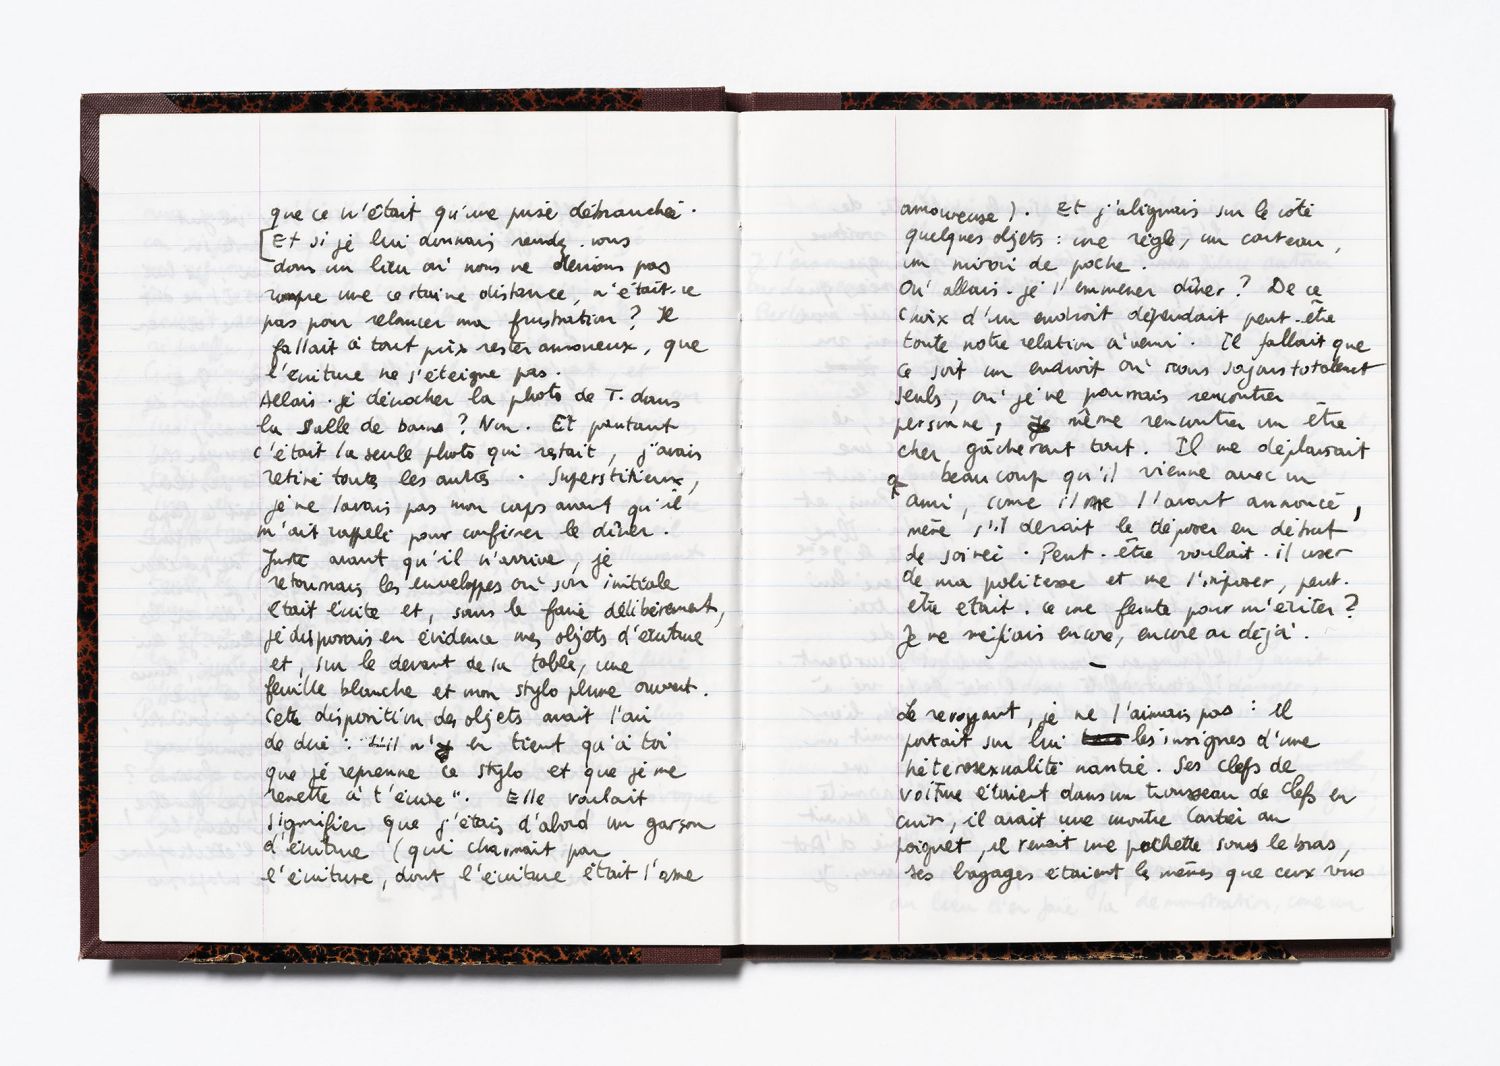 que ce n'était qu'une prise débranchée.
Et si je lui donnais rendez-vous
dans un lieu où nous ne devions pas
rompre une certaine distance, n'était-ce
pas pour relancer ma frustration ? Il
fallait à tout prix rester amoureux, que
l'écriture ne s'éteigne pas.
Allais-je décrocher la photo de T. dans
la salle de bains ? Non. Et pourtant
c'était la seule photo qui restait, j'avais
retiré toutes les autres. Superstitieux,
je ne lavais pas mon corps avant qu'il
m'ait rappelé pour confirmer le dîner.
Juste avant qu'il n'arrive, je
retournais les enveloppes où son initiale
était écrite et, sans le faire délibérément,
je disposais en évidence mes objets d'écriture
et, sur le devant de la table, une
feuille blanche et mon stylo plume ouvert.
Cette disposition des objets avait l'air
de dire : "il n' en tient qu'à toi
que je reprenne ce stylo et que je me
remette à t'écrire". Elle voulait
signifier que j'étais d'abord un garçon
d'écriture (qui charmait par
l'écriture, dont l'écriture était l'arme
amoureuse). Et j'alignais sur le côté
quelques objets : une règle, un couteau,
un miroir de poche.
Où allais-je l'emmener dîner ? De ce
choix d'un endroit dépendait peut-être
toute notre relation à venir. Il fallait que
ce soit un endroit où nous soyons totalement
seuls, où je ne pourrais rencontrer
personne, même rencontrer un être
cher gâcherait tout. Il me déplaisait
beaucoup qu'il vienne avec un
ami, comme il me l'avait annoncé,
même s'il devait le déposer en début
de soirée. Peut-être voulait-il user
de ma politesse et me l'imposer, peut-
être était-ce une feinte pour m'éviter ?
Je me méfiais encore, encore ou déjà.
–
Le revoyant, je ne l'aimais pas : il
portait sur lui les insignes d'une
hétérosexualité nantie. Ses clefs de
voiture étaient dans un trousseau de clefs en
cuir, il avait une montre Cartier au
poignet, il tenait une pochette sous le bras,
ses bagages étaient les mêmes que ceux vus